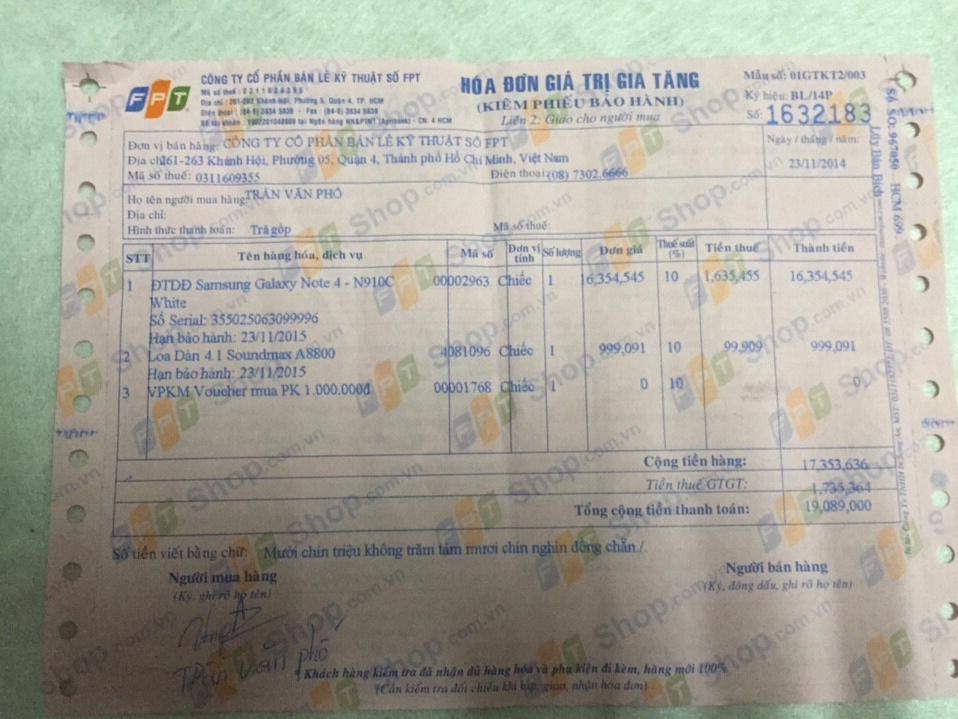 FPT
CÔNG TY CỔ PHẦN BÁN LẺ KỸ THUẬT SỐ FPT
Mã số thuế : 0311609355
Địa chỉ : 261-263 Khánh Hội, Phường 5, Quận 4, TP. HCM
HÓA ĐƠN GIÁ TRỊ GIA TĂNG
(KIÊM PHIẾU BẢO HÀNH)
Liên 2: Giao cho người mua
Mẫu số: 01GTKT2/003
Ký hiệu: BL/14P
Số: 1632183
Đơn vị bán hàng CÔNG TY CỔ PHẦN BÁN LẺ KỸ THUẬT SỐ FPT
Địa chỉ: 261-263 Khánh Hội, Phường 05, Quận 4, Thành phố Hồ Chí Minh, Việt Nam
Mã số thuế: 0311609355 Điện thoại: (08) 7302 6666
Ngày / tháng / năm:
23/11/2014
Họ tên người mua hàng: TRẦN VĂN PHÔ
Địa chỉ:
Hình thức thanh toán: Trả góp Mã số thuế:
STT Tên hàng hóa, dịch vụ Mã số Đơn vị tính Số lượng Đơn giá Thuế suất (%) Tiền thuế Thành tiền
1 ĐTDĐ Samsung Galaxy Note 4 - N910C 00002963 Chiếc 1 16,354,545 10 1,635,455 16,354,545
White
Số Serial: 355025063099996
Hạn bảo hành: 23/11/2015
2 Loa Dàn 4.1 Soundmax A8800 4081096 Chiếc 1 999,091 10 99,909 999,091
Hạn bảo hành: 23/11/2015
3 VPKM Voucher mua PK 1.000.000đ 00001768 Chiếc 1 0 10 0
Cộng tiền hàng: 17,353,636
Tiền thuế GTGT: 1,735,364
Tổng cộng tiền thanh toán: 19,089,000
Số tiền viết bằng chữ: Mười chín triệu không trăm tám mươi chín nghìn đồng chẵn./.
Người mua hàng
(Ký, ghi rõ họ tên)
Người bán hàng
(Ký, đóng dấu, ghi rõ họ tên)
Trần Văn Phô
Khách hàng kiểm tra đã nhận đủ hàng hóa và phụ kiện đi kèm, hàng mới 100%
(Cần kiểm tra đối chiếu khi lập, giao, nhận hóa đơn)
FPT Shop.com.vn